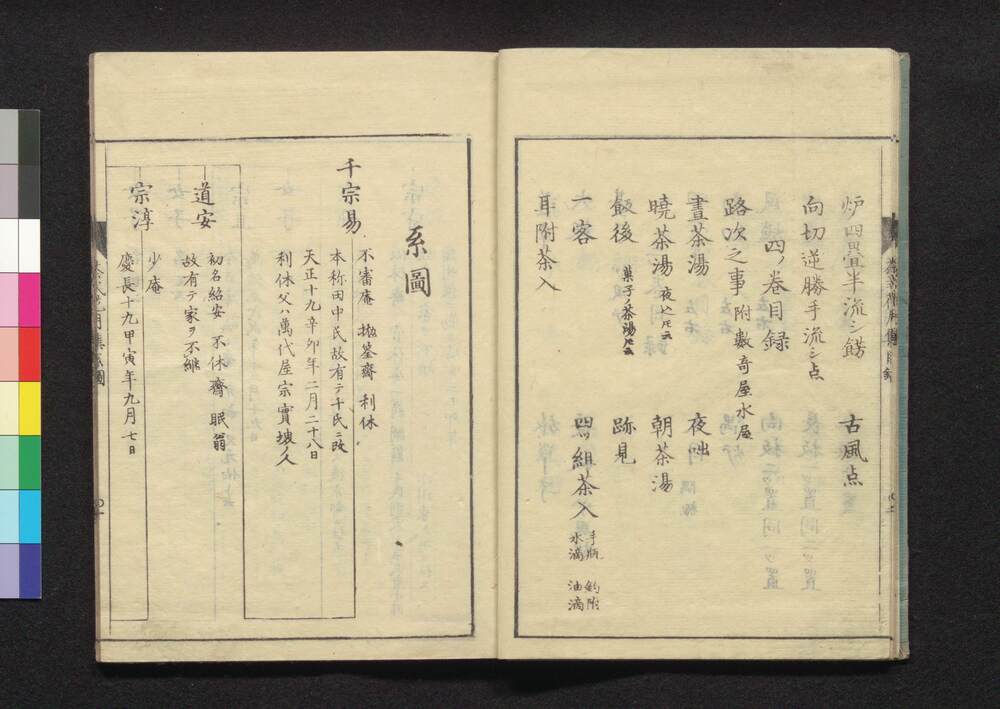 炉四畳半流シ餝 古風点
向切逆勝手流シ点
四ノ巻目録
路次之事 附数奇屋水屋
夜咄
晝茶湯
暁茶湯 夜込トモ云
朝茶湯
飯後 菓子ノ茶湯トモ云
跡見
一客
四ツ組茶入 手瓶 釣附 水滴 油滴
耳附茶入
系圖
千宗易
不審庵 抛筌齋 利休
本称田中氏故有テ千氏ニ改
天正十九辛卯年二月二十八日
利休父ハ萬代屋宗實
道安
初名紹安 不休齋 眠翁
故有テ家ヲ不継
宗淳
少庵
慶長十九甲寅年九月七日